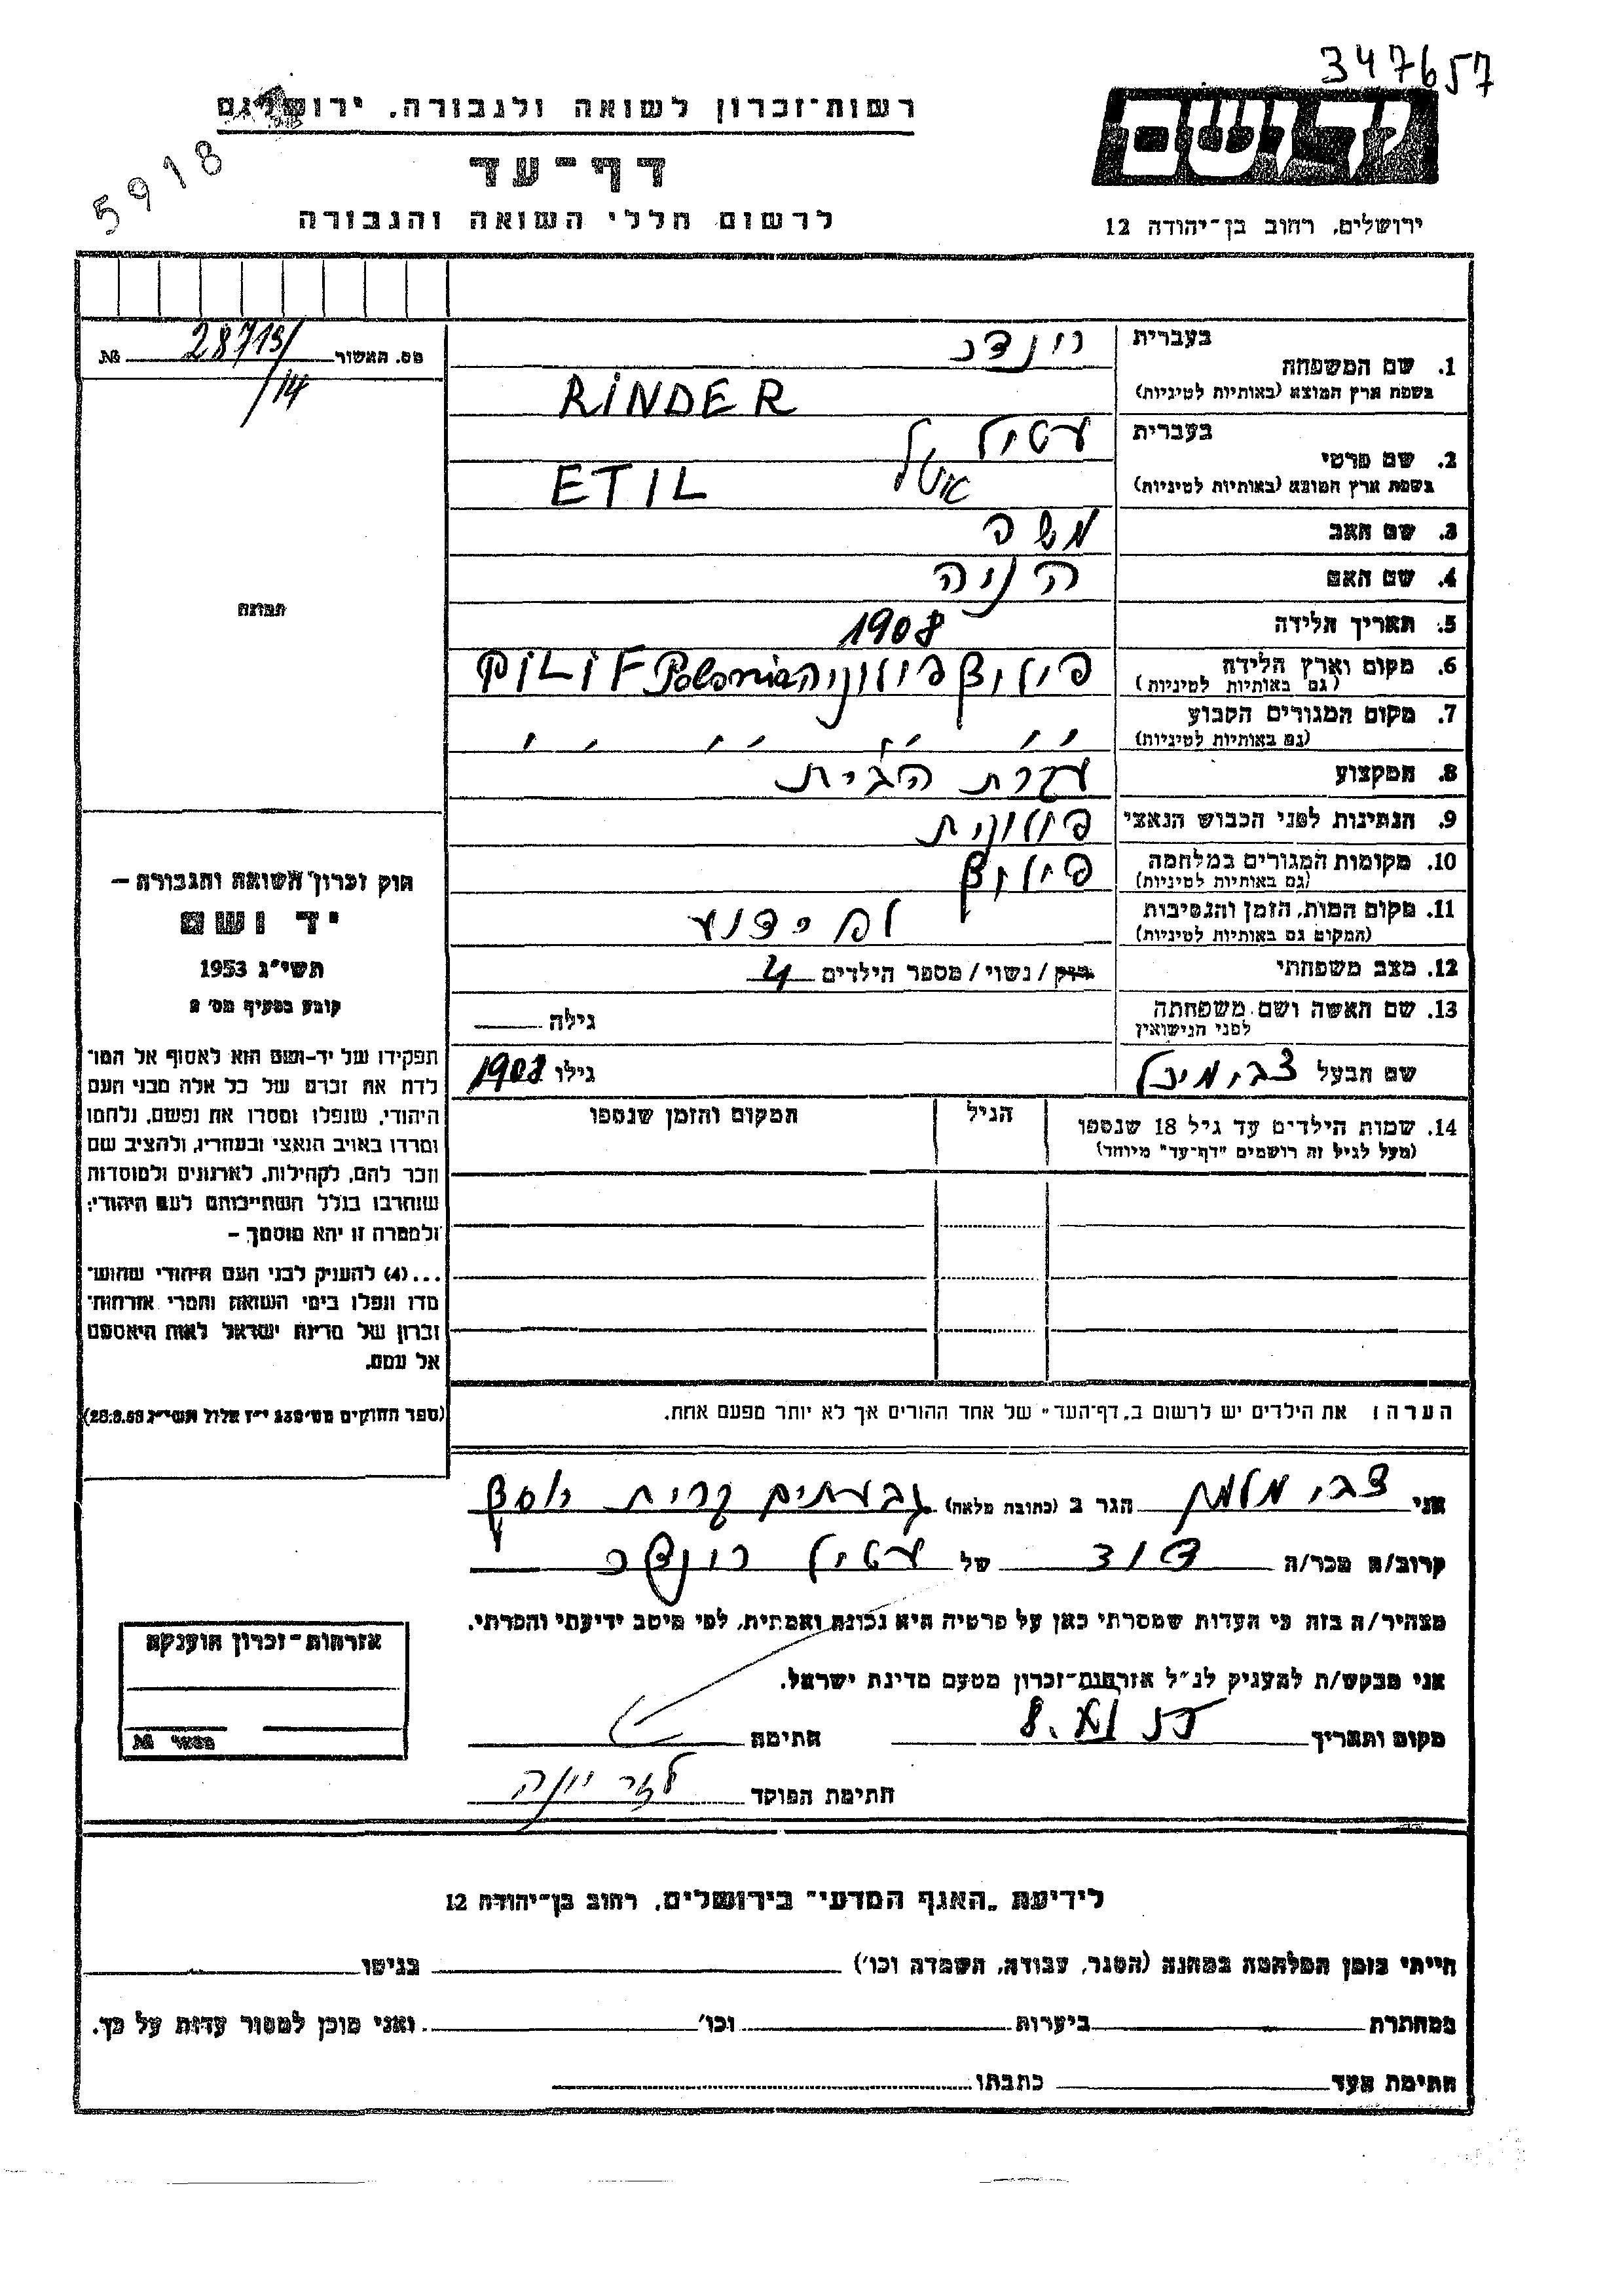 347657
רשות־זכרון לשואה ולגבורה, ירושלים
5918
יד ושם
דף־עד
ירושלים, רחוב בן־יהודה 12
לרשום חללי השואה והגבורה
מס. האשור 28713/ №
/14
1. שם המשפחה בעברית רינדר
בשפת ארץ המוצא (באותיות לטיניות) RiNDER
2. שם פרטי בעברית עטיל
בשפת ארץ המוצא (באותיות לטיניות) ETIL אטל
3. שם האב משה
4. שם האם הניה
5. תאריך הלידה 1908
6. מקום וארץ הלידה פילוף פולוניה Polonia PiLiF
(גם באותיות לטיניות)
7. מקום המגורים הקבוע
(גם באותיות לטיניות)
8. המקצוע עקרת הבית
9. הנתינות לפני הכבוש הנאצי פולונית
10. מקומות המגורים במלחמה פילוף
(גם באותיות לטיניות)
11. מקום המות, הזמן והנסיבות לא ידוע
(המקום גם באותיות לטיניות)
12. מצב משפחתי רוק / נשוי / מספר הילדים 4
13. שם האשה ושם משפחתה גילה
לפני הנישואין
שם הבעל צבי, מיכל גילו 1908
14. שמות הילדים עד גיל 18 שנספו הגיל המקום והזמן שנספו
(מעל לגיל זה רושמים "דף־עד" מיוחד)
תמונה
חוק זכרון השואה והגבורה –
יד ושם
תשי"ג 1953
קובע בסעיף מס' 2
תפקידו של יד־ושם הוא לאסוף אל המו־
לדת את זכרם של כל אלה מבני העם
היהודי, שנפלו ומסרו את נפשם, נלחמו
ומרדו באויב הנאצי ובעוזריו, ולהציב שם
וזכר להם, לקהילות, לארגונים ולמוסדות
שנחרבו בגלל השתייכותם לעם היהודי;
ולמטרה זו יהא מוסמך –
...(4) להעניק לבני העם היהודי שהוש־
מדו ונפלו בימי השואה והמרי אזרחות־
זכרון של מדינת ישראל לאות היאספם
אל עמם.
(ספר החוקים מס' 132 י"ז אלול תשי"ג 28.8.53)
הערה: את הילדים יש לרשום ב„דף־העד" של אחד ההורים אך לא יותר מפעם אחת.
אני צבי הגר ב (כתובת מלאה) גבעתיים קרית יוסף
קרוב/ה מכר/ה דוד של עטיל רינדר
מצהיר/ה בזה כי העדות שמסרתי כאן על פרטיה היא נכונה ואמתית, לפי מיטב ידיעתי והכרתי.
אני מבקש/ת להעניק לנ"ל אזרחות־זכרון מטעם מדינת ישראל.
מקום ותאריך חתימה
חתימת הפוקד לזר יונה
אזרחות־זכרון הוענקה
№
לידיעת „האגף המדעי" בירושלים, רחוב בן־יהודה 12
הייתי בזמן המלחמה במחנה (הסגר, עבודה, השמדה וכו') בגיטו
במחתרת ביערות וכו' ואני מוכן למסור עדות על כך.
חתימת העד כתבתו